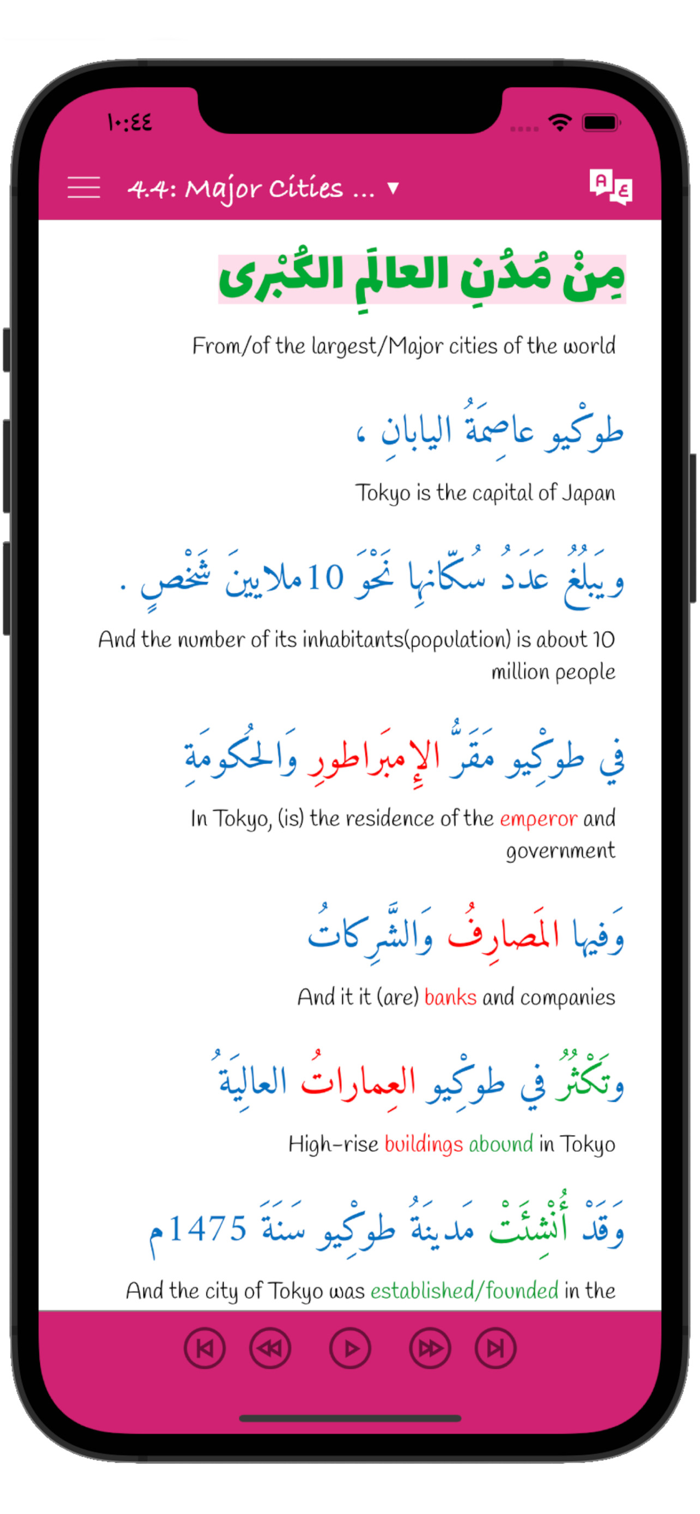 ١٠:٤٤
4.4: Major Cities ... ▼
A ع
مِنْ مُدُنِ العالَمِ الكُبْرى
From/of the largest/Major cities of the world
طوكْيو عاصِمَةُ اليابانِ ،
Tokyo is the capital of Japan
ويَبلُغُ عَدَدُ سُكّانهِا نَحْوَ 10ملايينَ شَخْصٍ .
And the number of its inhabitants(population) is about 10
million people
في طوكْيِو مَقَرُّ الإِمبَراطورِ وَالحُكومَةِ
In Tokyo, (is) the residence of the emperor and
government
وَفيها المَصارِفُ وَالشَّرِكاتُ
And it it (are) banks and companies
وتَكْثُرُ في طوكْيِو العِماراتُ العالِيَةُ
High-rise buildings abound in Tokyo
وَقَدْ أُنْشِئَتْ مَدينَةُ طوكْيِو سَنَةَ 1475م
And the city of Tokyo was established/founded in the